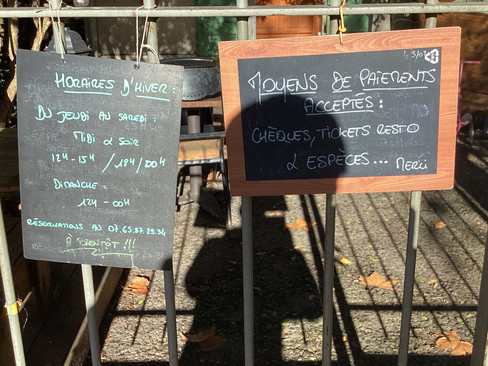 HORAIRES D'HIVER :
DU JEUDI AU SAMEDI :
MIDI & SOIR
12H-15H / 18H/00H
DIMANCHE :
12H - 00H
RÉSERVATIONS AU 07.65.87.29.34
À BIENTÔT !!!
MOYENS DE PAIEMENTS
ACCEPTÉS :
CHÈQUES, TICKETS RESTO
& ESPÈCES... MERCI